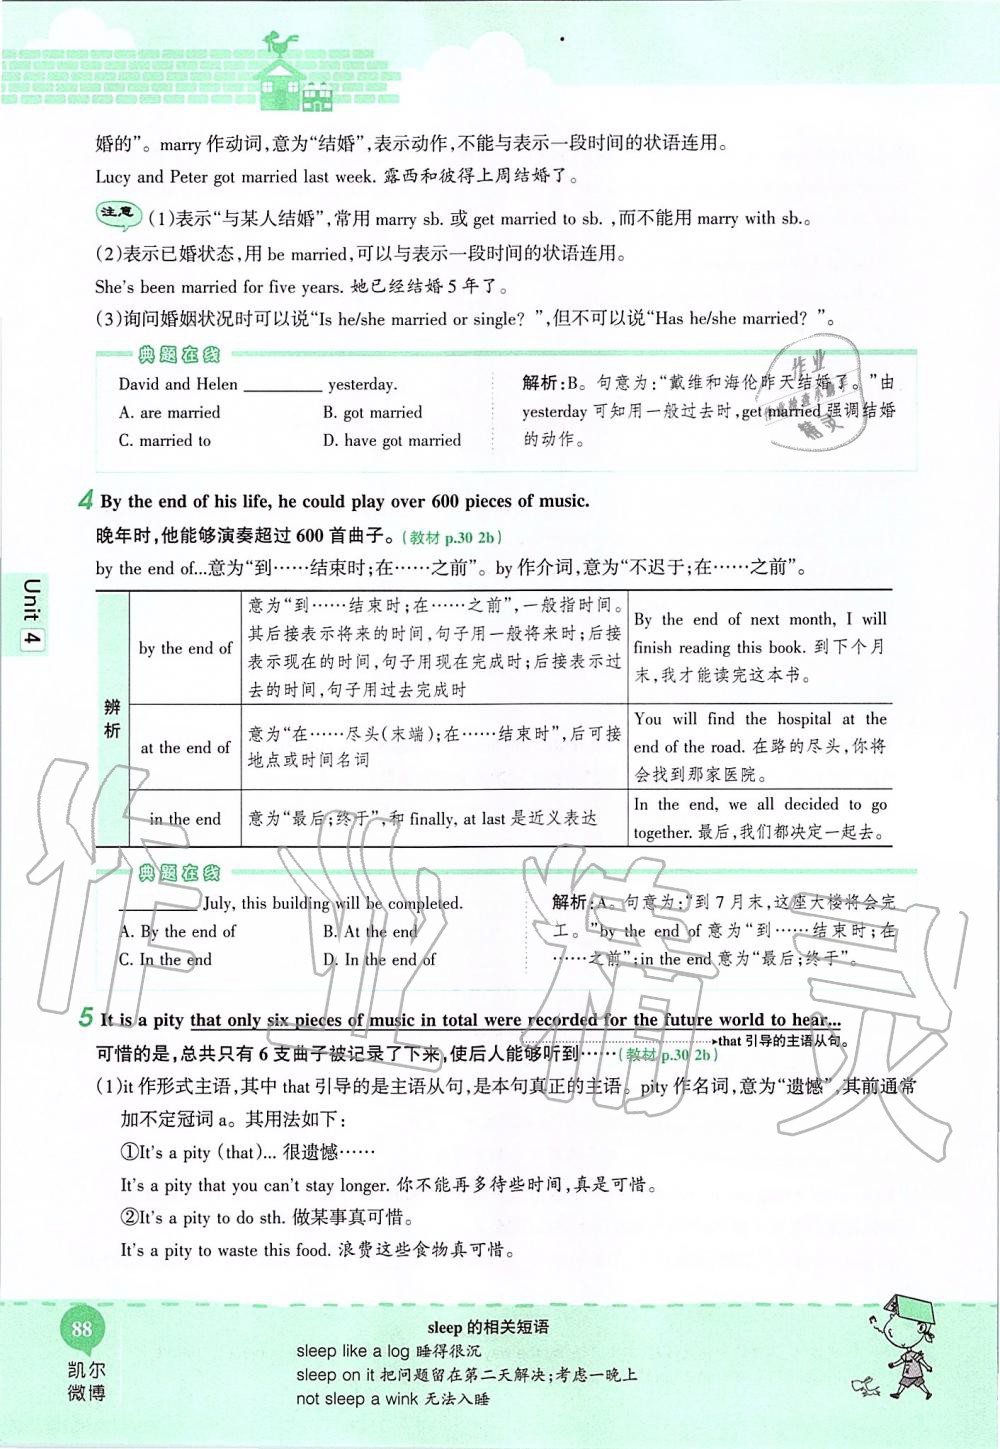 婚的”。marry作动词,意为“结婚”,表示动作,不能与表示一段时间的状语连用。
Lucy and Peter got married last week. 露西和彼得上周结婚了。
注意 (1)表示“与某人结婚”,常用 marry sb. 或 get married to sb. ,而不能用 marry with sb.。
(2)表示已婚状态,用 be married,可以与表示一段时间的状语连用。
She's been married for five years. 她已经结婚5年了。
(3)询问婚姻状况时可以说“Is he/she married or single? ”,但不可以说“Has he/she married? ”。
典题在线
David and Helen ________ yesterday.
A. are married B. got married
C. married to D. have got married
解析:B。句意为:“戴维和海伦昨天结婚了。”由
yesterday 可知用一般过去时,get married 强调结婚
的动作。
4 By the end of his life, he could play over 600 pieces of music.
晚年时,他能够演奏超过600首曲子。(教材 p.30 2b)
by the end of...意为“到……结束时;在……之前”。by作介词,意为“不迟于;在……之前”。
辨析
by the end of
意为“到……结束时;在……之前”,一般指时间。
其后接表示将来的时间,句子用一般将来时;后接
表示现在的时间,句子用现在完成时;后接表示过
去的时间,句子用过去完成时
By the end of next month, I will
finish reading this book. 到下个月
末,我才能读完这本书。
at the end of
意为“在……尽头(末端);在……结束时”,后可接
地点或时间名词
You will find the hospital at the
end of the road. 在路的尽头,你将
会找到那家医院。
in the end
意为“最后;终于”,和 finally, at last 是近义表达
In the end, we all decided to go
together. 最后,我们都决定一起去。
典题在线
________ July, this building will be completed.
A. By the end of B. At the end
C. In the end D. In the end of
解析:A。句意为:“到7月末,这座大楼将会完
工。”by the end of 意为“到……结束时;在
……之前”;in the end 意为“最后;终于”。
5 It is a pity that only six pieces of music in total were recorded for the future world to hear...
that引导的主语从句。
可惜的是,总共只有6支曲子被记录了下来,使后人能够听到……(教材 p.30 2b)
(1)it作形式主语,其中that引导的是主语从句,是本句真正的主语。pity作名词,意为“遗憾”,其前通常
加不定冠词a。其用法如下:
①It's a pity (that)... 很遗憾……
It's a pity that you can't stay longer. 你不能再多待些时间,真是可惜。
②It's a pity to do sth. 做某事真可惜。
It's a pity to waste this food. 浪费这些食物真可惜。
Unit 4
88
凯尔
微博
sleep的相关短语
sleep like a log 睡得很沉
sleep on it 把问题留在第二天解决;考虑一晚上
not sleep a wink 无法入睡
作业精灵